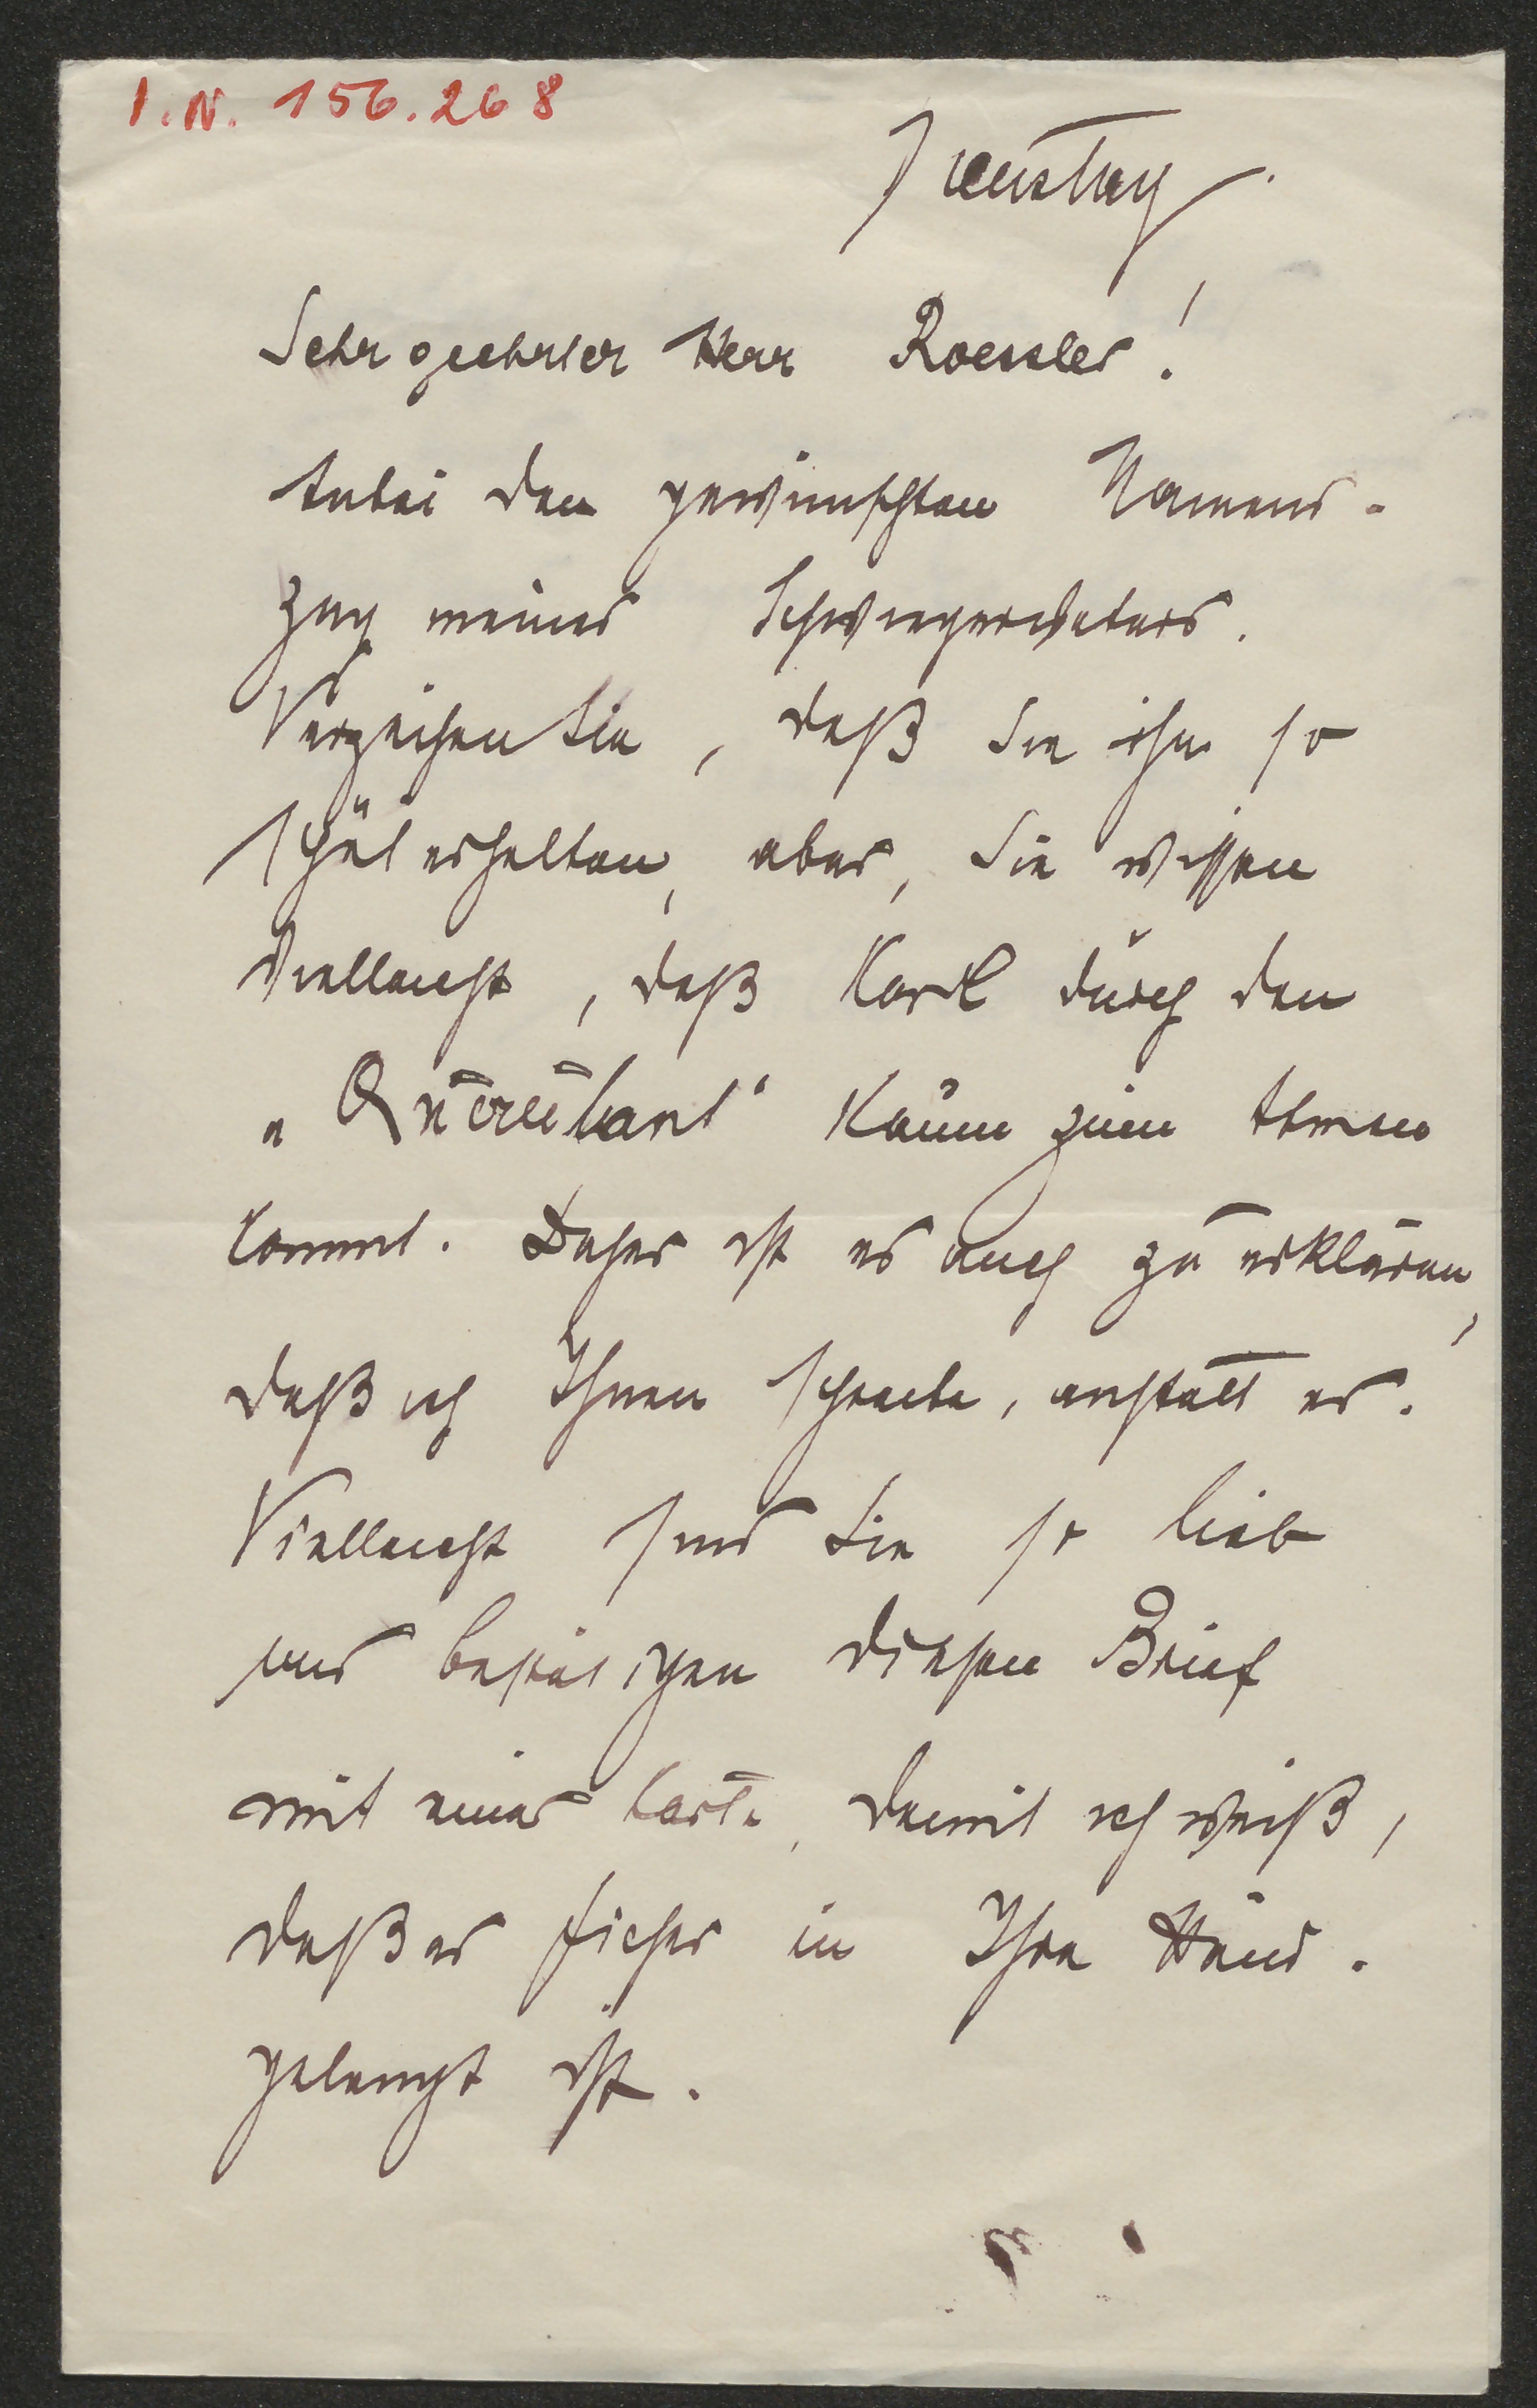 I.N. 156.268
Dienstag.
Sehr geehrter Herr Roessler!
Anbei den gewünschten Namens-
zug meines Schwiegervaters.
Verzeihen Sie, daß Sie ihn so
spät erhalten, aber, Sie wissen
vielleicht, daß Karl durch den
„Querulant“ kaum zum Atmen
kommt. Daher ist es auch zu erklären,
daß ich Ihnen schreibe, anstatt er.
Vielleicht sind Sie so lieb
und bestätigen diesen Brief
mit einer Karte, damit ich weiß,
daß er sicher in Ihre Händ.
gelangt ist.